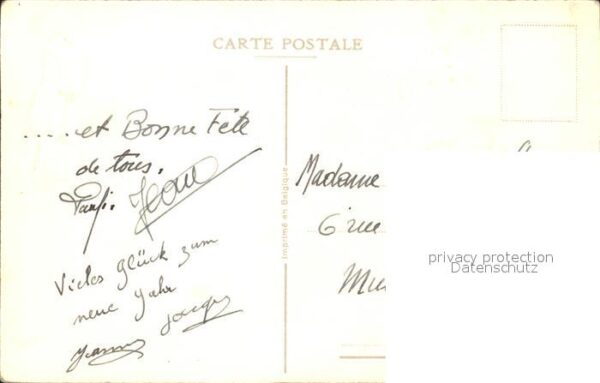 CARTE POSTALE
..... et Bonne Fête
de tous,
Jean
Vieles glück zum
neue Jahr
Jacques
Jeanne
Imprimé en Belgique
Madame
6 rue
privacy protection
Datenschutz